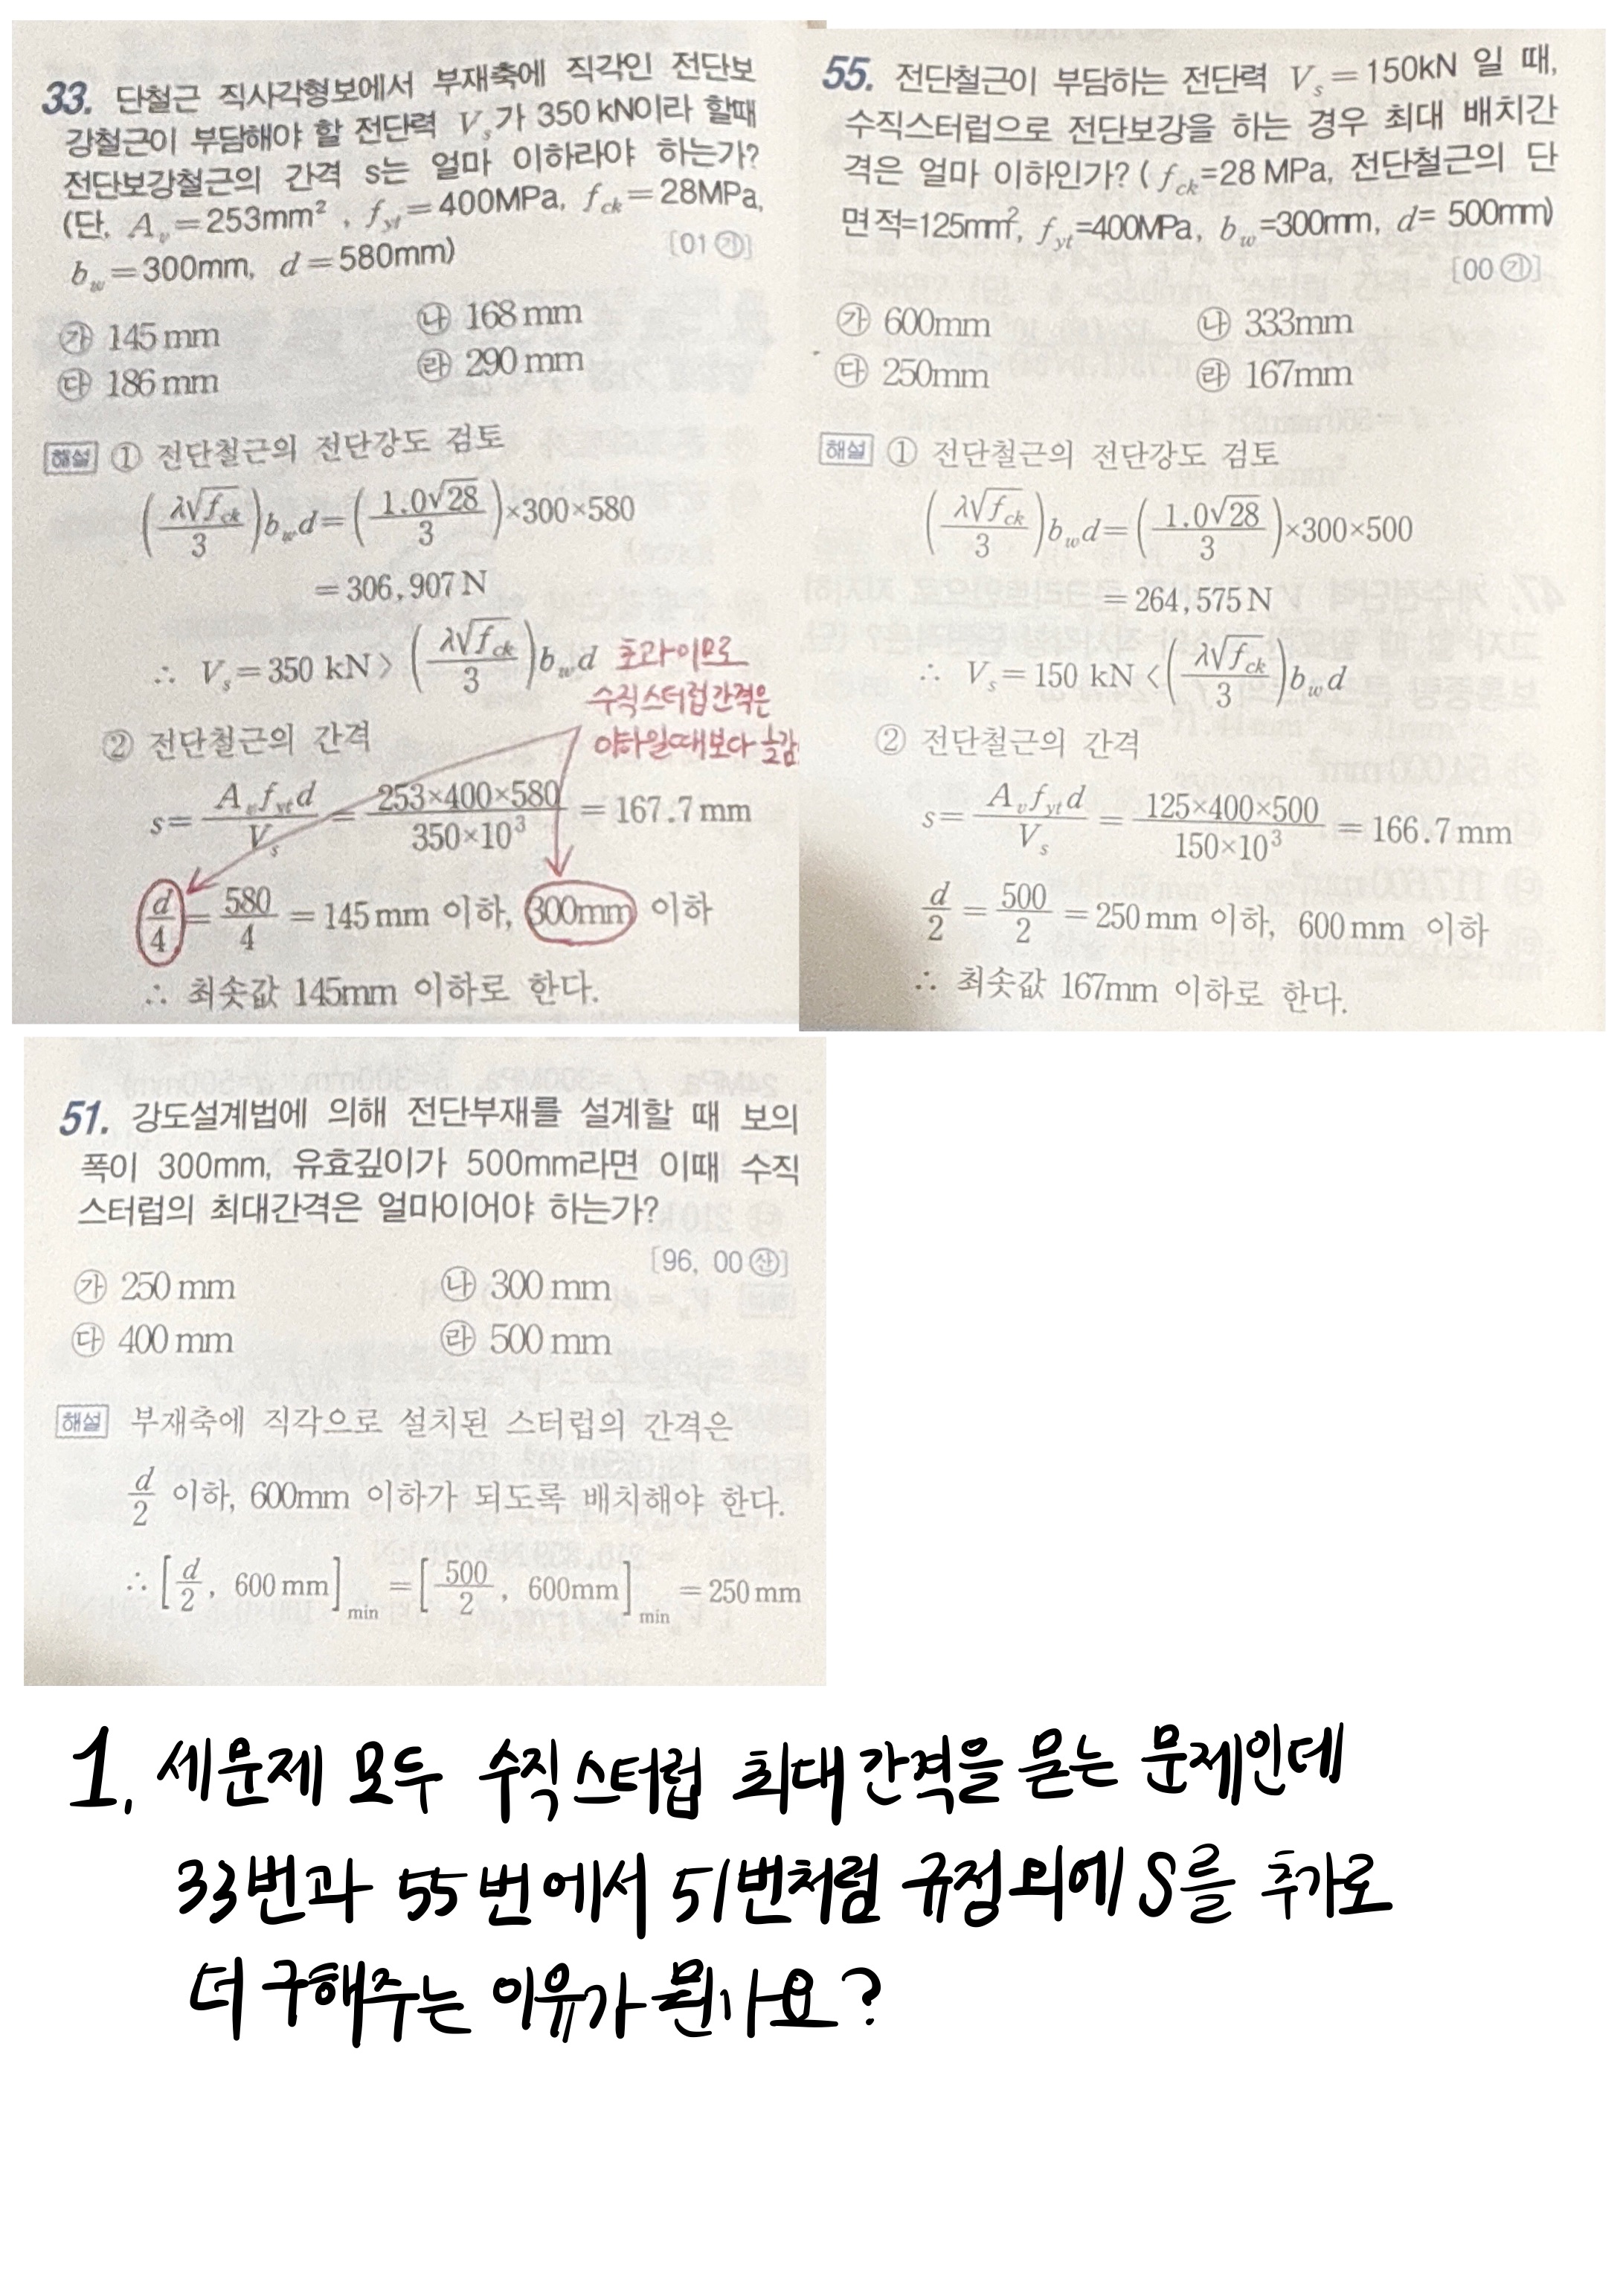 33. 단철근 직사각형보에서 부재축에 직각인 전단보
강철근이 부담해야 할 전단력 Vs가 350 kN이라 할때
전단보강철근의 간격 s는 얼마 이하라야 하는가?
(단, Av=253mm², fyt=400MPa, fck=28MPa,
bw=300mm, d=580mm)
[01 ㉮]
㉮ 145mm ㉯ 168mm
㉰ 186mm ㉱ 290mm
해설 ① 전단철근의 전단강도 검토
(λ√fck/3)bwd=(1.0√28/3)×300×580
=306,907N
∴ Vs=350 kN > (λ√fck/3)bwd 초과이므로
수직스터럽간격은
이하일때보다
② 전단철근의 간격
s=Avfytd/Vs=253×400×580/350×10³=167.7mm
d/4=580/4=145mm 이하, 300mm 이하
∴ 최솟값 145mm 이하로 한다.
55. 전단철근이 부담하는 전단력 Vs=150kN 일 때,
수직스터럽으로 전단보강을 하는 경우 최대 배치간
격은 얼마 이하인가? (fck=28 MPa, 전단철근의 단
면적=125mm², fyt=400MPa, bw=300mm, d= 500mm)
[00 ㉮]
㉮ 600mm ㉯ 333mm
㉰ 250mm ㉱ 167mm
해설 ① 전단철근의 전단강도 검토
(λ√fck/3)bwd=(1.0√28/3)×300×500
=264,575N
∴ Vs=150 kN <(λ√fck/3)bwd
② 전단철근의 간격
s=Avfytd/Vs=125×400×500/150×10³=166.7mm
d/2=500/2=250mm 이하, 600mm 이하
∴ 최솟값 167mm 이하로 한다.
51. 강도설계법에 의해 전단부재를 설계할 때 보의
폭이 300mm, 유효깊이가 500mm라면 이때 수직
스터럽의 최대간격은 얼마이어야 하는가?
[96, 00 ㊛]
㉮ 250mm ㉯ 300mm
㉰ 400mm ㉱ 500mm
해설 부재축에 직각으로 설치된 스터럽의 간격은
d/2 이하, 600mm 이하가 되도록 배치해야 한다.
∴ [d/2, 600mm]min=[500/2, 600mm]min=250mm
1. 세문제 모두 수직스터럽 최대간격을 묻는 문제인데
33번과 55번에서 51번처럼 규정외에 S를 추가로
더 구해주는 이유가 뭔가요?